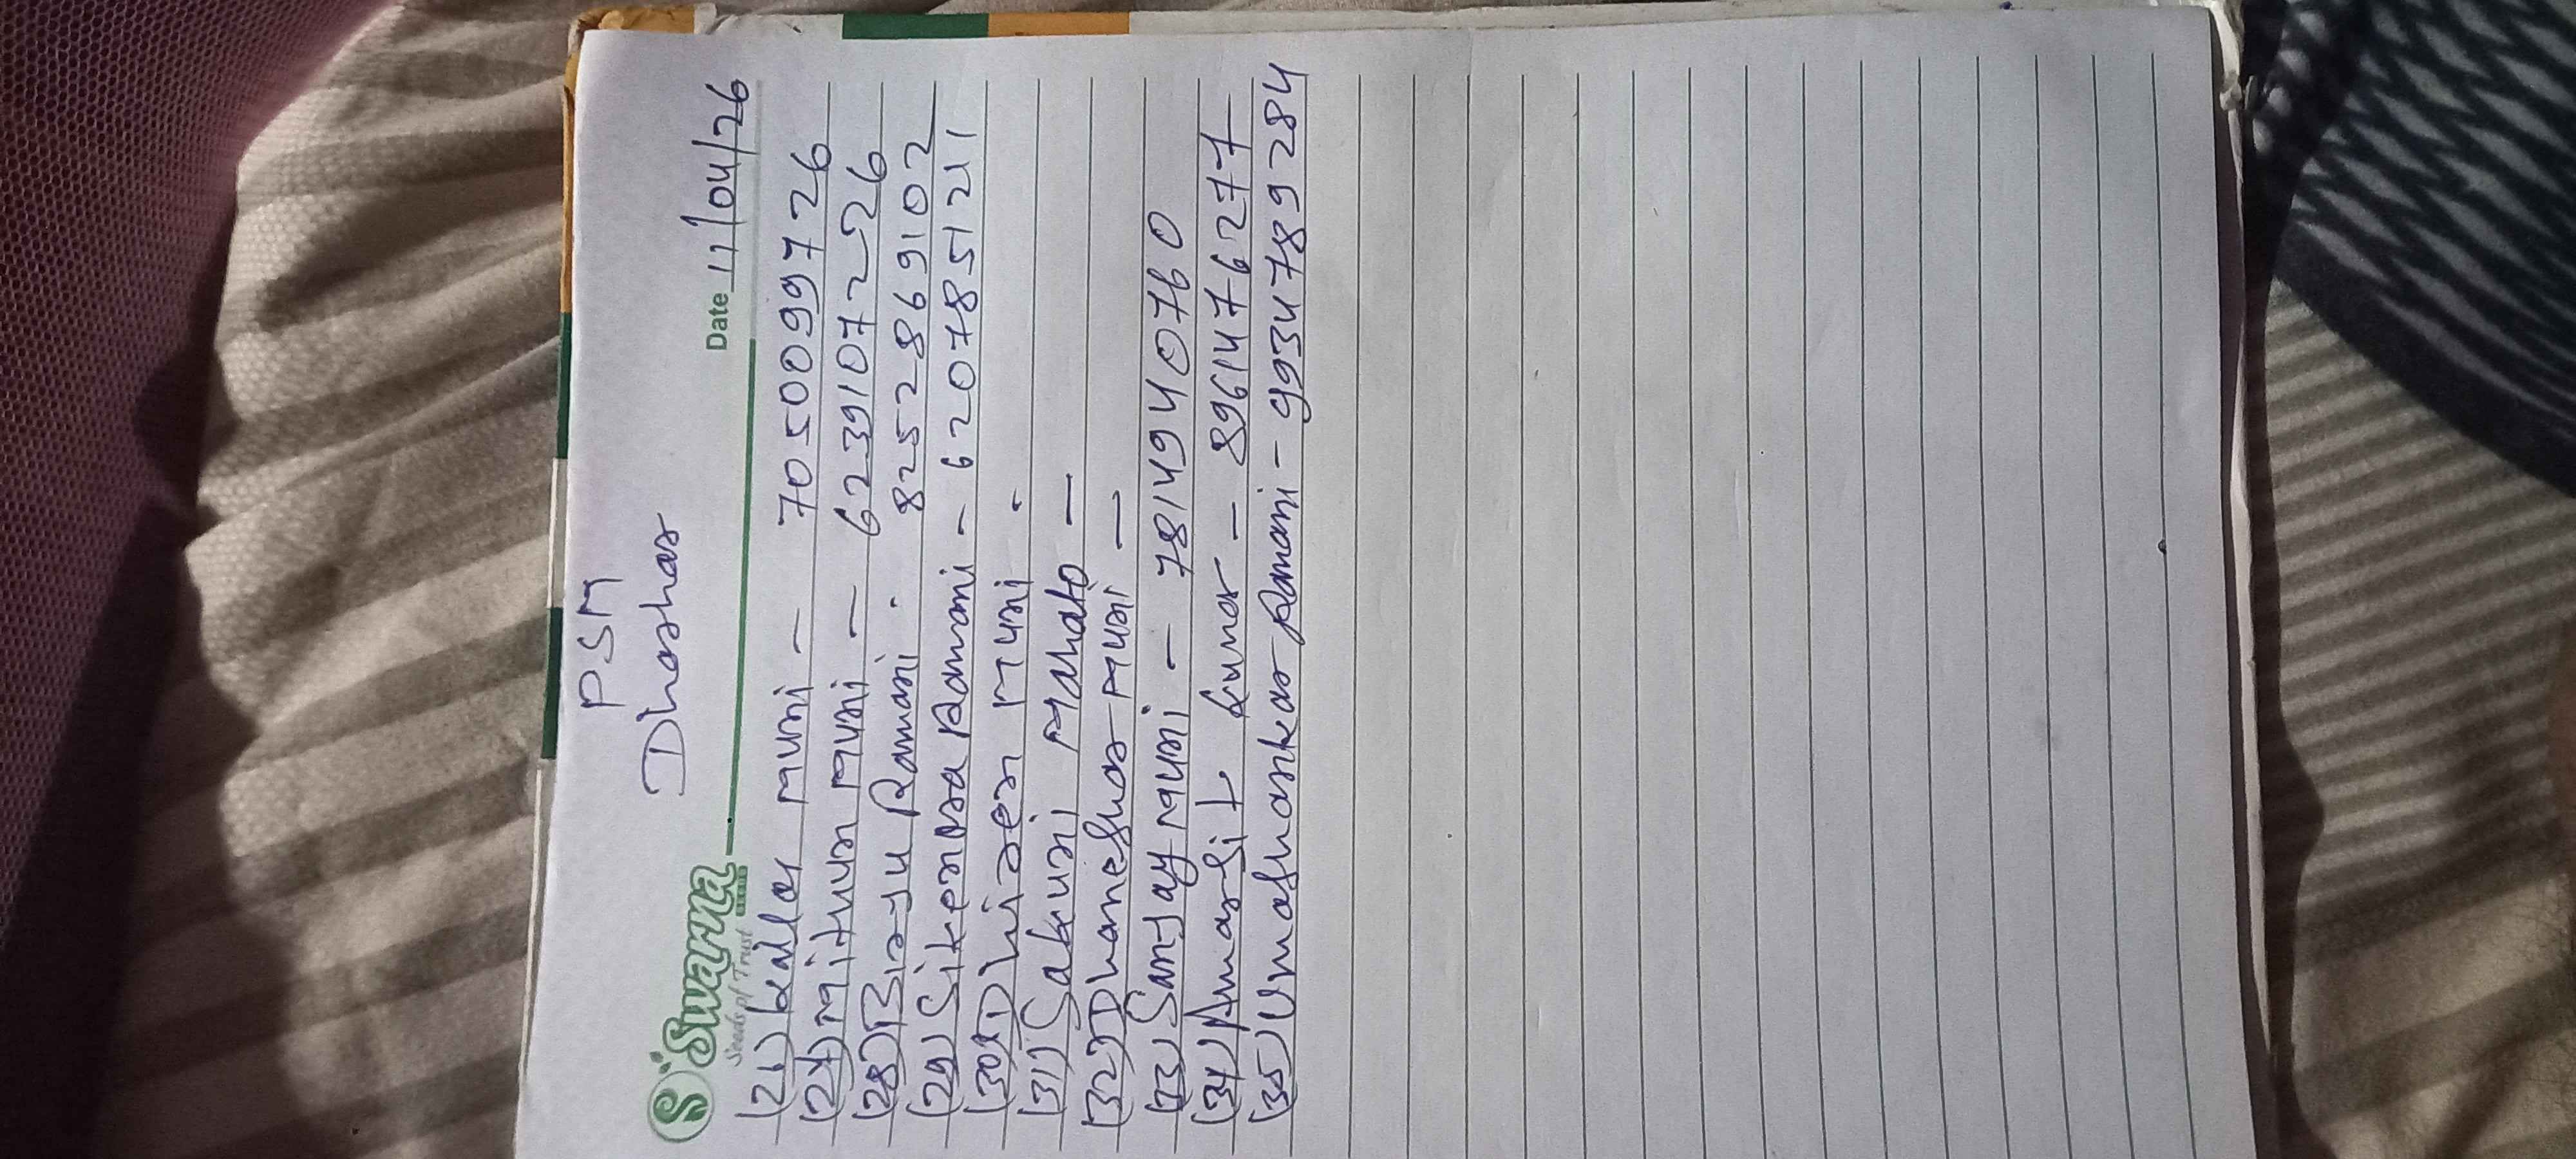 PSM
Dharhar
Swarna
Seeds of Trust
Date 11/04/26
(26) Kailas Muni — 7050099726
(27) Mithun Muni — 6239107226
(28) Birju Ramani - 8252869102
(29) Sikendra Ramani - 6207851211
(30) Dhiren Muni -
(31) Sakuni Mahato —
(32) Dhaneshar Muni —
(33) Sanjay Muni — 7814940760
(34) Amarjit Kumar — 8961476277
(35) Umashankar Ramani - 9934789284